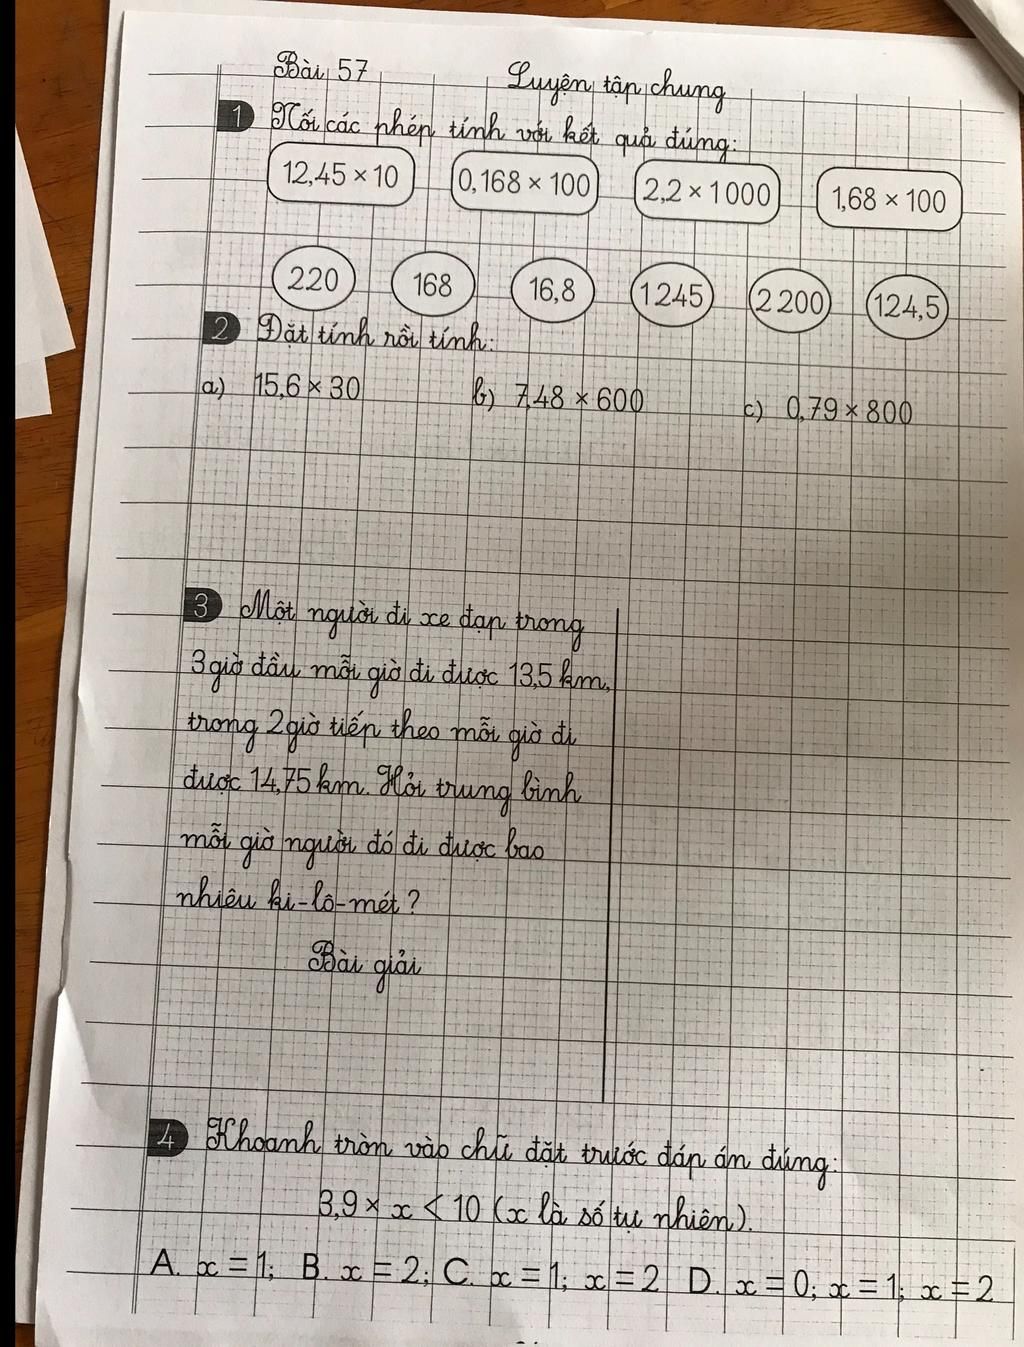 Bài 57 Luyện tập chung
1 Nối các phép tính với kết quả đúng:
12,45 × 10 0,168 × 100 2,2 × 1000 1,68 × 100
220 168 16,8 1245 2200 124,5
2 Đặt tính rồi tính:
a) 15,6 × 30 b) 7,48 × 600 c) 0,79 × 800
3 Một người đi xe đạp trong
3 giờ đầu mỗi giờ đi được 13,5 km,
trong 2 giờ tiếp theo mỗi giờ đi
được 14,75 km. Hỏi trung bình
mỗi giờ người đó đi được bao
nhiêu ki-lô-mét?
Bài giải
4 Khoanh tròn vào chữ đặt trước đáp án đúng:
3,9 × x < 10 (x là số tự nhiên).
A. x = 1; B. x = 2; C. x = 1; x = 2 D. x = 0; x = 1; x = 2